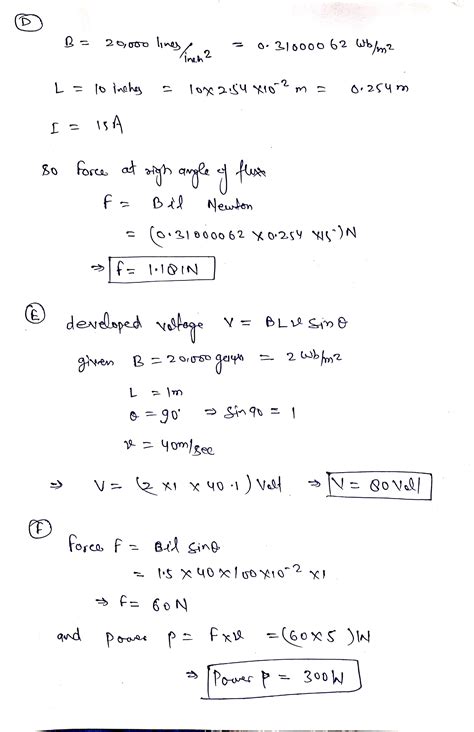 D
B = 20,000 lines/inch2 = 0.31000062 Wb/m2
L = 10 inches = 10×2.54×10-2 m = 0.254m
I = 15A
so force at right angle of flux
f = Bil Newton
= (0.31000062 × 0.254 × 15)N
⇒ f = 1.181N
E
developed voltage V = BLv Sinθ
given B = 20,000 gauss = 2 wb/m2
L = 1m
θ = 90° ⇒ Sin90 = 1
v = 40m/sec
⇒ V = (2 ×1 × 40·1) Volt ⇒ V = 80 Volt
F
force f = Bil Sinθ
= 1.5 × 40 × 100×10-2 ×1
⇒ f = 60N
and power P = F×v = (60×5)W
⇒ Power P = 300W